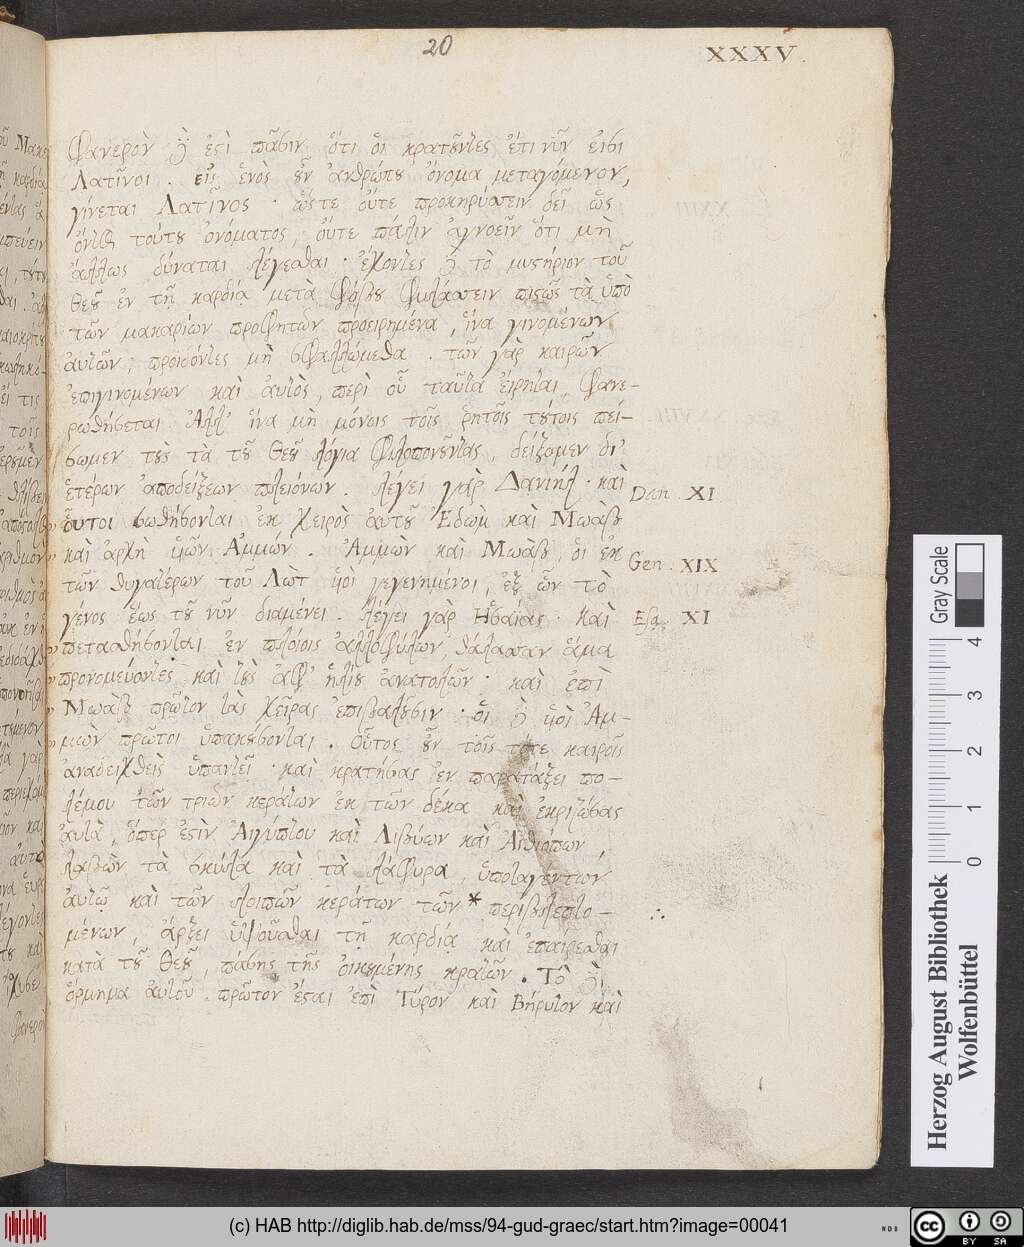 20
XXXV.
Φανερὸν δ' ἐστὶ πᾶσιν ὅτι οἱ κρατοῦντες ἔτι νῦν εἰσι
Λατῖνοι. εἰς ἑνὸς οὖν ἀνθρώπου ὄνομα μεταγόμενον,
γίνεται Λατῖνος· ὥστε οὔτε προκηρύσσειν δεῖ ὡς
ὄντως τούτου ὀνόματος, οὔτε πάλιν ἀγνοεῖν ὅτι μὴ
ἄλλως δύναται λέγεσθαι· ἔχοντες δὲ τὸ μυστήριον τοῦ
θεοῦ ἐν τῇ καρδίᾳ μετὰ φόβου φυλάσσειν πιστῶς τὰ ὑπὸ
τῶν μακαρίων προφητῶν προειρημένα, ἵνα γινομένων
αὐτῶν, προειδότες μὴ σφαλλώμεθα. τῶν γὰρ καιρῶν
ἐπιγινομένων καὶ αὐτὸς, περὶ οὗ ταῦτα εἴρηται, φανε-
ρωθήσεται Ἀλλ' ἵνα μὴ μόνοις τοῖς ῥητοῖς τούτοις πεί-
σωμεν τοὺς τὰ τοῦ θεοῦ λόγια φιλοπονοῦντας, δείξομεν δι'
ἑτέρων ἀποδείξεων πλειόνων. λέγει γὰρ Δανιήλ· καὶ
Dan. XI
οὗτοι σωθήσονται ἐκ χειρὸς αὐτοῦ Ἐδὼμ καὶ Μωὰβ
καὶ ἀρχὴ υἱῶν Ἀμμών. Ἀμμὼν καὶ Μωὰβ, οἱ ἐκ
Gen. XIX
τῶν θυγατέρων τοῦ Λὼτ υἱοὶ γεγενημένοι, ἐξ ὧν τὸ
γένος ἕως τοῦ νῦν διαμένει. λέγει γὰρ Ἡσαΐας· καὶ
Esa. XI
πετασθήσονται ἐν πλοίοις ἀλλοφύλων, θάλασσαν ἅμα
προνομεύσοντες καὶ τοὺς ἀφ' ἡλίου ἀνατολῶν· καὶ ἐπὶ
Μωὰβ πρῶτον τὰς χεῖρας ἐπιβαλοῦσιν· οἱ δὲ υἱοὶ Ἀμ-
μὼν πρῶτοι ὑπακούσονται. Οὗτος οὖν τοῖς τότε καιροῖς
ἀναδειχθεὶς ὑπαντεῖ· καὶ κρατήσας ἐν παρατάξει πο-
λέμου τῶν τριῶν κεράτων ἐκ τῶν δέκα καὶ ἐκριζώσας
αὐτὰ, ὅπερ ἐστὶν Αἰγύπτου καὶ Λιβύων καὶ Αἰθιόπων,
λαβὼν τὰ σκῦλα καὶ τὰ λάφυρα, ὑποταγέντων
αὐτῷ καὶ τῶν λοιπῶν κεράτων τῶν * περιβλεπτο-
μένων, ἄρξει ὑψοῦσθαι τῇ καρδίᾳ καὶ ἐπαίρεσθαι
κατὰ τοῦ θεοῦ, πάσης τῆς οἰκουμένης κρατῶν. Τὸ δὲ
ὅρμημα αὐτοῦ πρῶτον ἔσται ἐπὶ Τύρον καὶ Βήρυτον καὶ
Herzog August Bibliothek
Wolfenbüttel
Gray Scale
0 1 2 3 4
(c) HAB http://diglib.hab.de/mss/94-gud-graec/start.htm?image=00041
cc BY SA